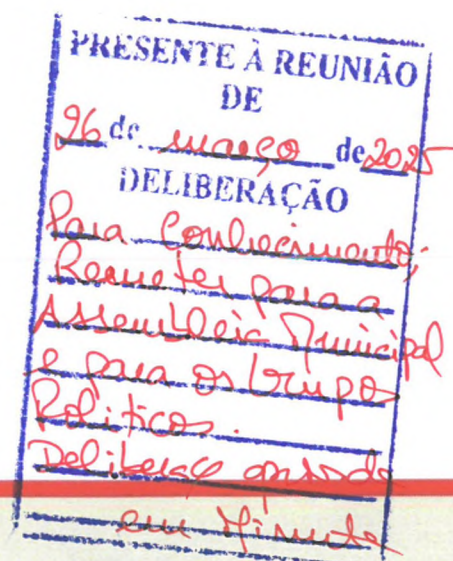 PRESENTE À REUNIÃO
DE
26 de março de 2025
DELIBERAÇÃO
Para Conhecimento;
Remeter para a
Assembleia Municipal
e para os Grupos
Políticos.
Deliberação
em Minuta